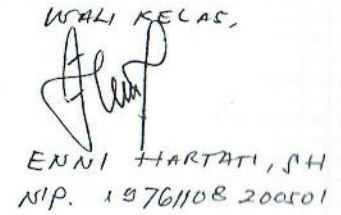 WALI KELAS,
ENNI HARTATI, SH
NIP. 19761108 200501